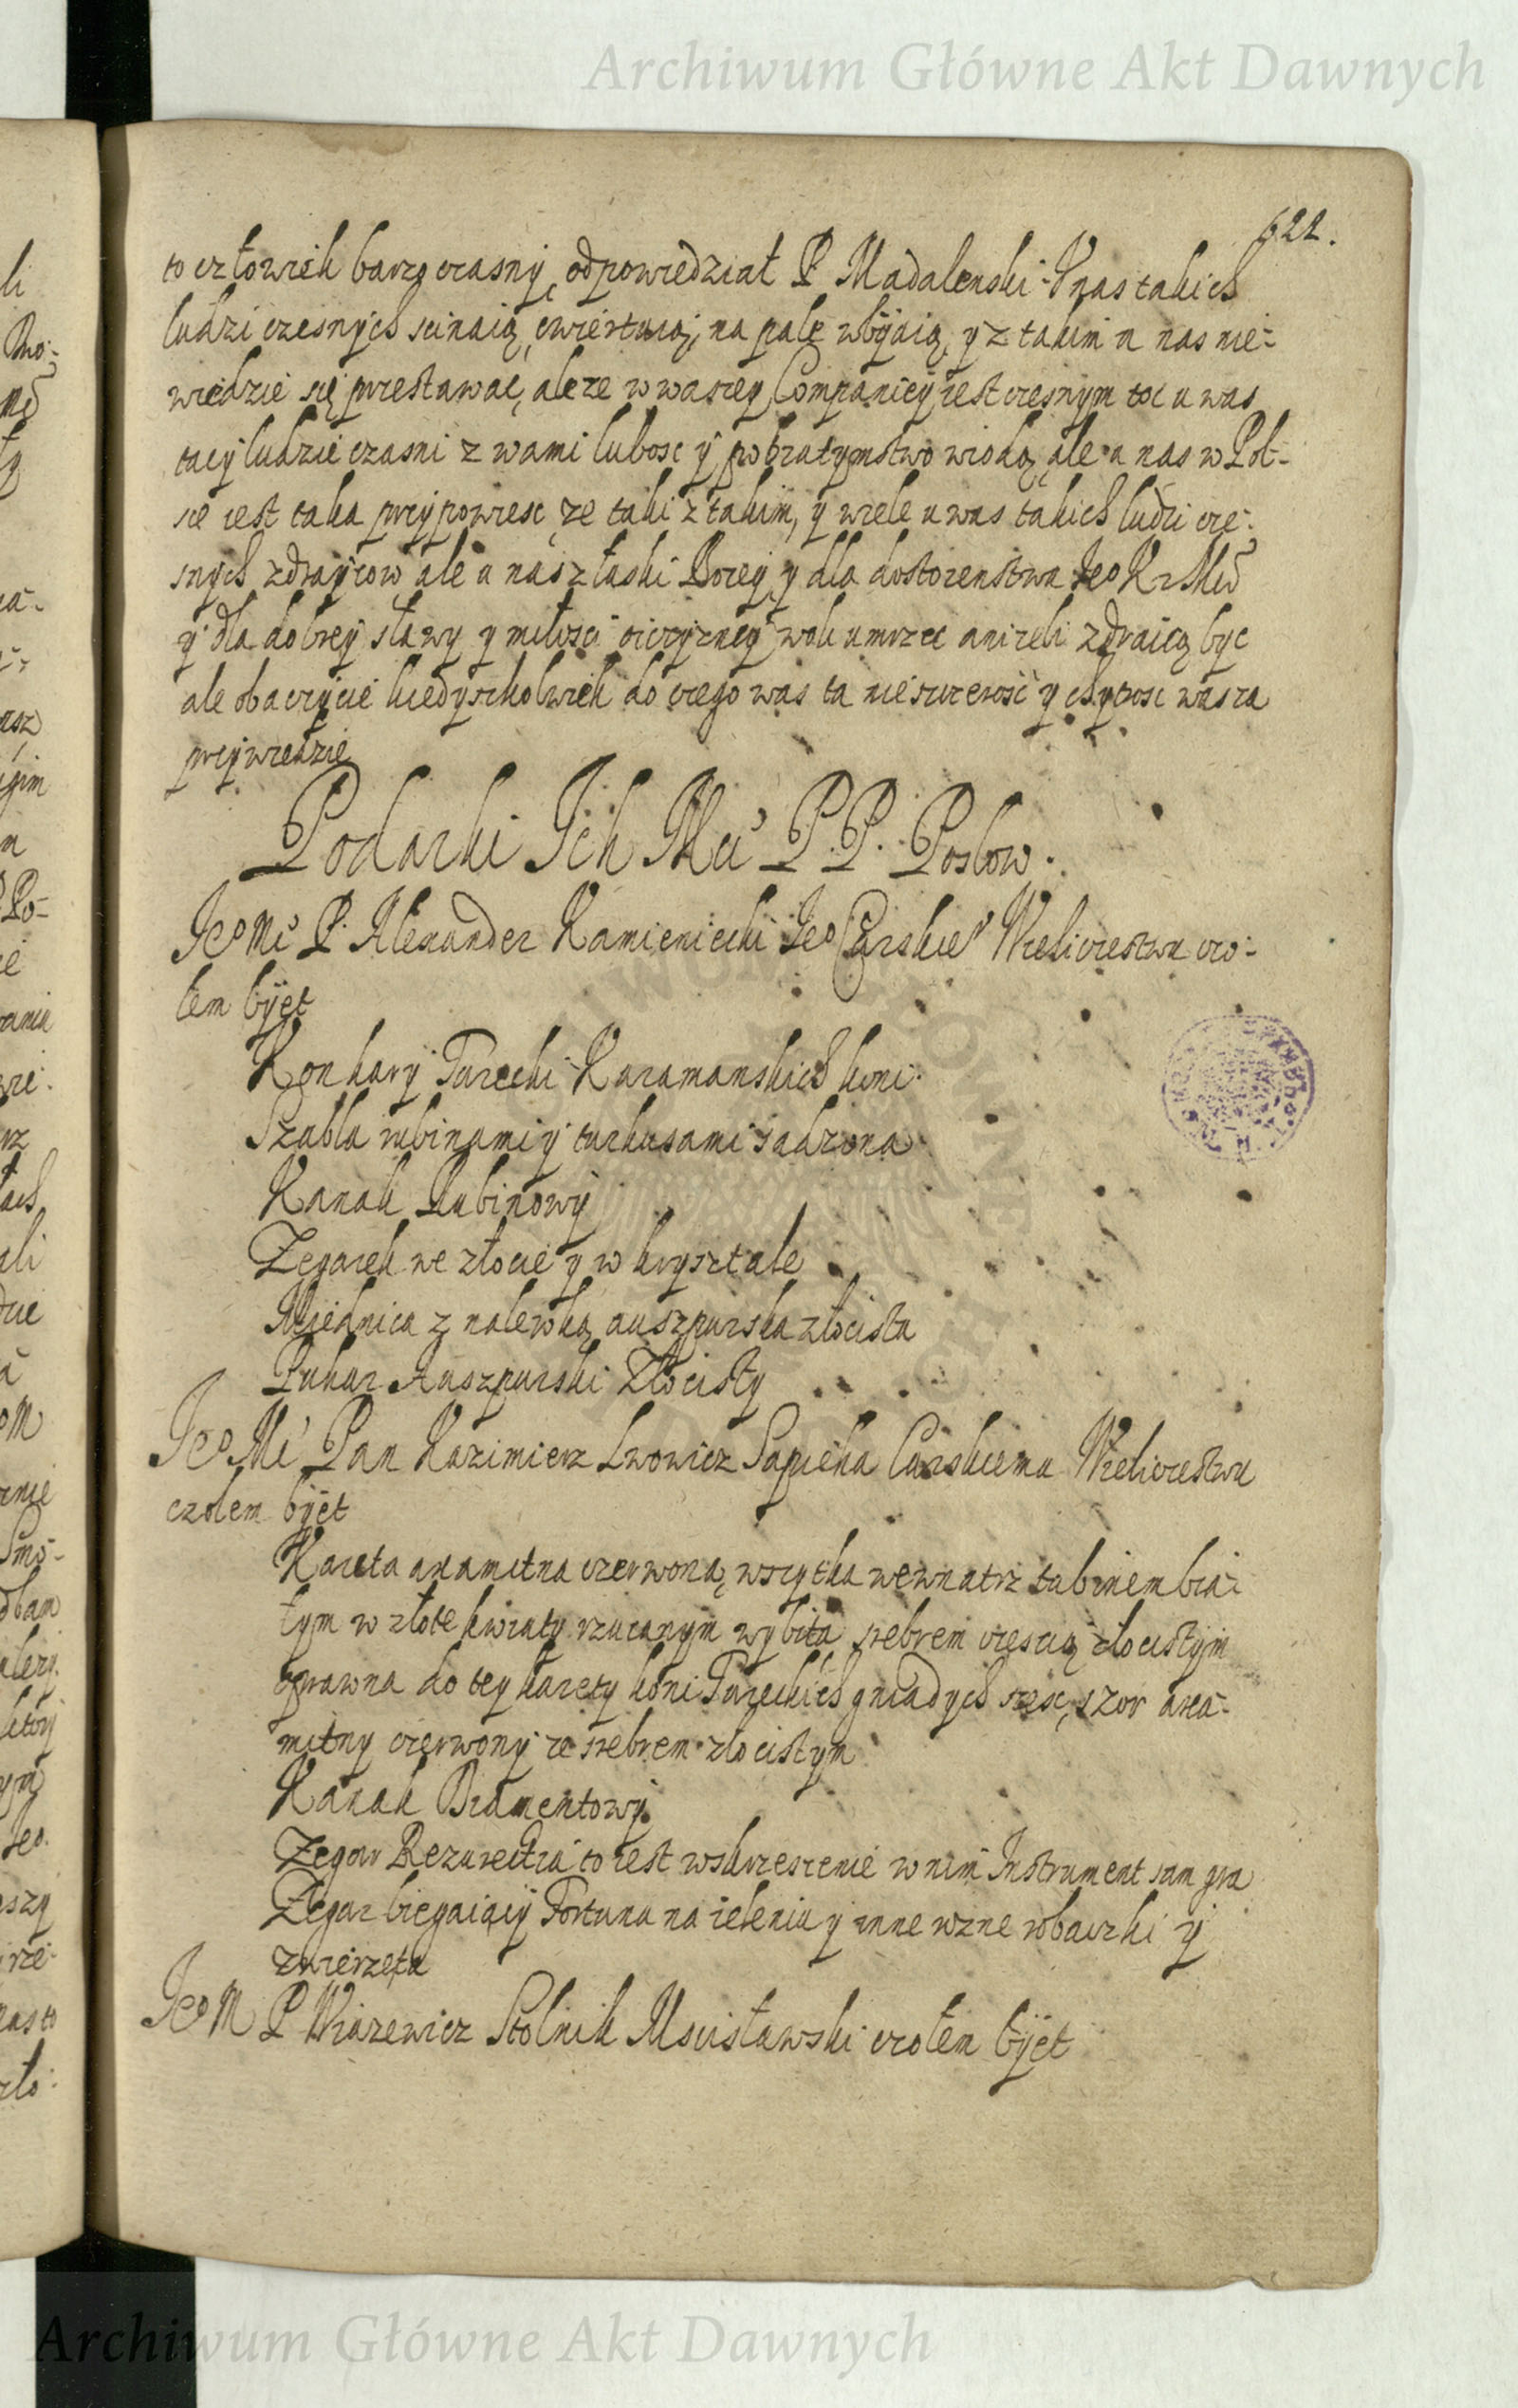 Archiwum Główne Akt Dawnych
622.
to człowiek barzo czasny, odpowiedział P. Madalenski. U nas takich
ludzi czesnych scinaią, cwiertuią, na pale wbijaią, y z takim u nas nie-
wiedzie się przestawać, ale ze w waszey Companiey iest czesnym toć u was
tacy ludzie czasni z wami lubosc y pobratymstwo wiodą, ale u nas w Pol-
sce iest taka przypowiesc, ze taki z takim, y wiele u was takich ludzi cze-
snych zdraycow ale u nas z łaski Bozey y dla dostoienstwa Jeo Kr Mci
y dla dobrey sławy y miłosci oiczyzney woli umrzec anizeli zdraicą byc
ale obaczycie kiedyszkolwiek do czego was ta nieszczerość y chytrosc wasza
przywiedzie
Podarki Ich Mci P.P. Posłow.
Jeo Mc P. Alexander Kamieniecki Jeo Carskie Wieliczestwu czo-
łem byet
Kon kary Turecki Karamanskich koni.
Szabla rubinami y turkusami sadzona
Kanak Rubinowy
Zegarek we złocie y w krysztale
Miednica z nalewką auszpurska złocista
Puhar Auszpurski Złocisty
Jeo Mc Pan Kazimierz Lwowicz Sapieha Carskiemu Wieliczestwu
czołem byet
Kareta axamitna czerwona, wszytka wewnatrz tabinem bia-
łym w złote kwiaty rzucanym wybita srebrem czescią złocistym
oprawna do tey karety koni Tureckich gniadych szesc, szor axa-
mitny czerwony ze srebrem złocistym
Kanak Diamentowy
Zegar Rezurectia to iest wskrzeszenie w nim Instrument sam gra
Zegar biegaiący Fortuna na ieleniu y inne rozne robaczki y
zwierzęta
Jeo M P Wiazewicz Stolnik Mscisławski czołem byet
Archiwum Główne Akt Dawnych